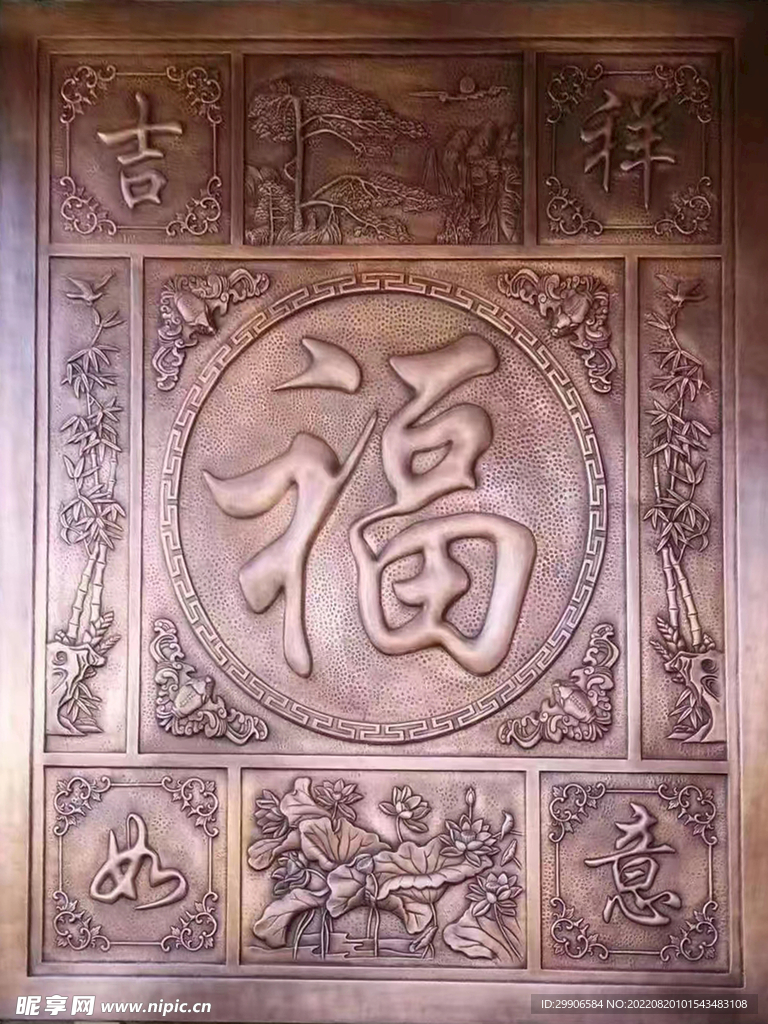 吉 祥
福
如 意
昵享网 www.nipic.cn
ID:29906584 NO:20220820101543483108